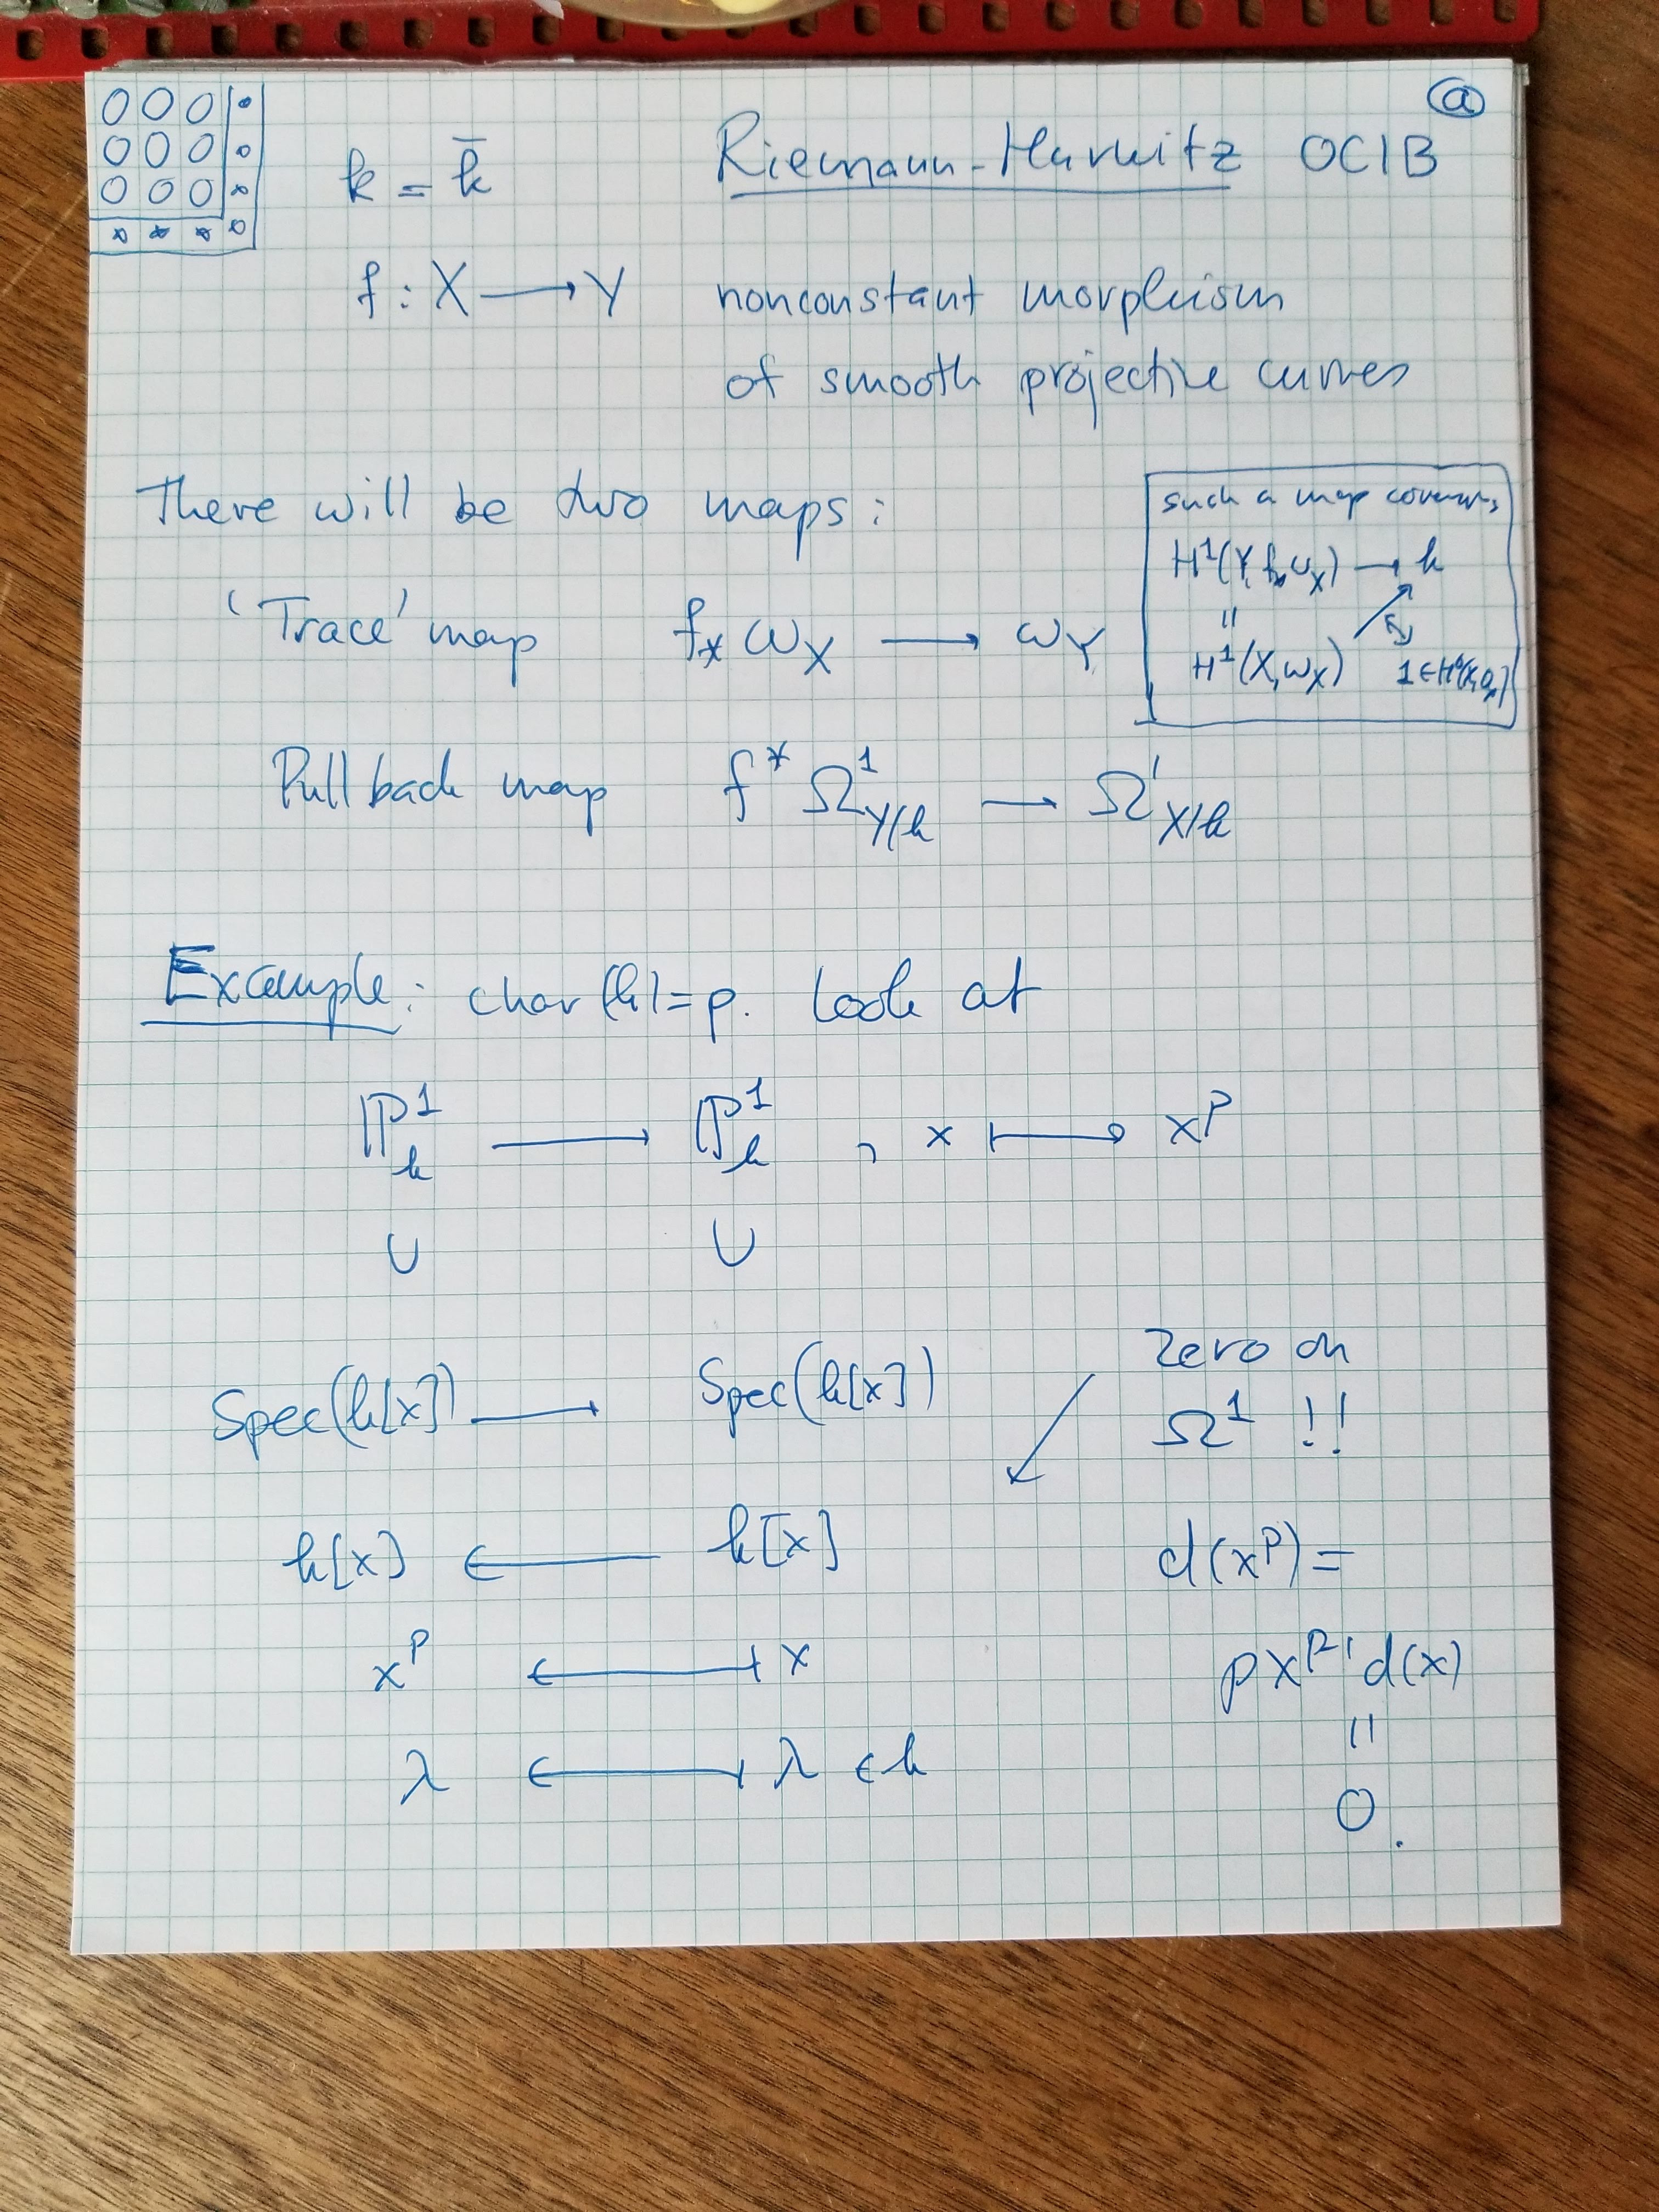 @
k = k̄ Riemann-Hurwitz OC1B
f : X ⟶ Y nonconstant morphism
of smooth projective curves
There will be two maps:
'Trace' map f_* ω_X ⟶ ω_Y
such a map
H¹(Y, f_* ω_X) → k
||
H¹(X, ω_X) 1 ∈ H⁰(X, O_X)
Pull back map f^* Ω¹_{Y/k} → Ω¹_{X/k}
Example: char(k)=p. Look at
ℙ¹_k ⟶ ℙ¹_k , x ⟼ x^p
∪ ∪
Spec(k[x]) ⟶ Spec(k[x])
zero on
Ω¹ !!
k[x] ⟵ k[x] d(x^p) =
x^p ⟻ x p x^{p-1} d(x)
||
λ ⟻ λ ∈ k
0.